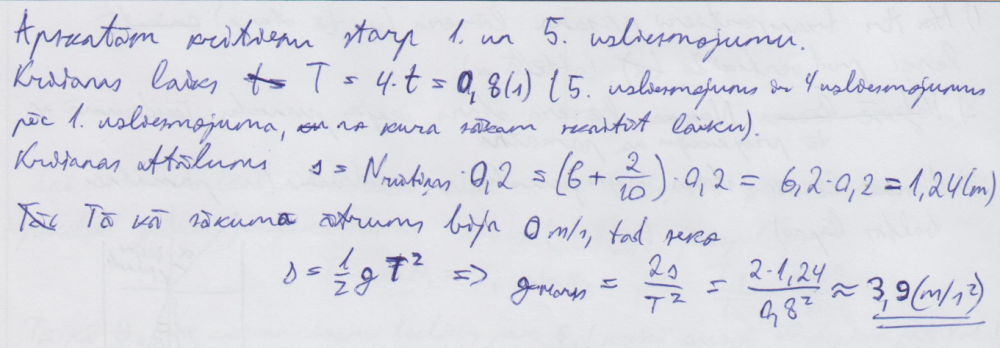 Apskatām kritienu starp 1. un 5. uzliesmojumu.
Krišanas laiks T = 4·t = 0,8(s) (5. uzliesmojums ir 4 uzliesmojums
pēc 1. uzliesmojuma, no kura sākam skaitīt laiku).
Krišanas attālums s = Nrūtiņas·0,2 = (6 + 2/10)·0,2 = 6,2·0,2 = 1,24(m)
Tā kā sākuma ātrums bija 0 m/s, tad seko
s = 1/2 g T² => gmarss = 2s/T² = 2·1,24/0,8² ≈ 3,9(m/s²)